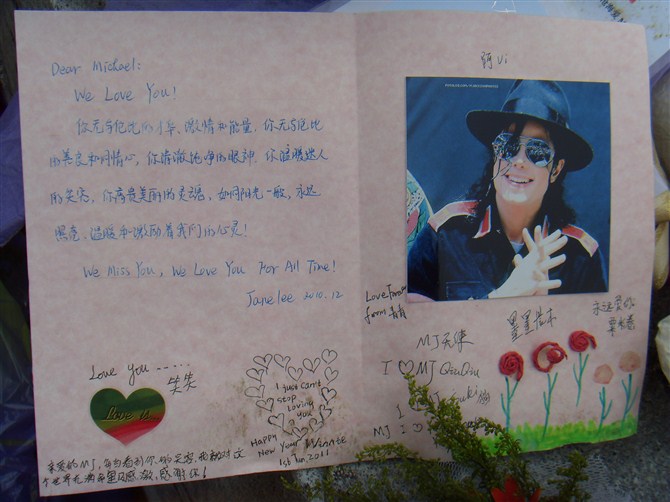 Dear Michael:
We Love You!
你无与伦比的才华、激情和能量,你无与伦比
的善良和同情心,你清澈纯净的眼神,你腼腆迷人
的笑容,你高贵美丽的灵魂,如同阳光一般,永远
照亮、温暖和激励着我们的心灵!
We Miss You, We Love You For All Time!
Jane lee 2010.12
Love You -----
笑笑
Love u
I just can't
stop
loving
you
Happy
New Year Winnie
1st Jan. 2011
亲爱的MJ,每当看到你的笑容,我都对这
个世界充满希望和感激,感谢你!
阿Vi
Love Forever
from
MJ天使
I ♡ MJ QiuQiu
I
MJ I
永远爱你